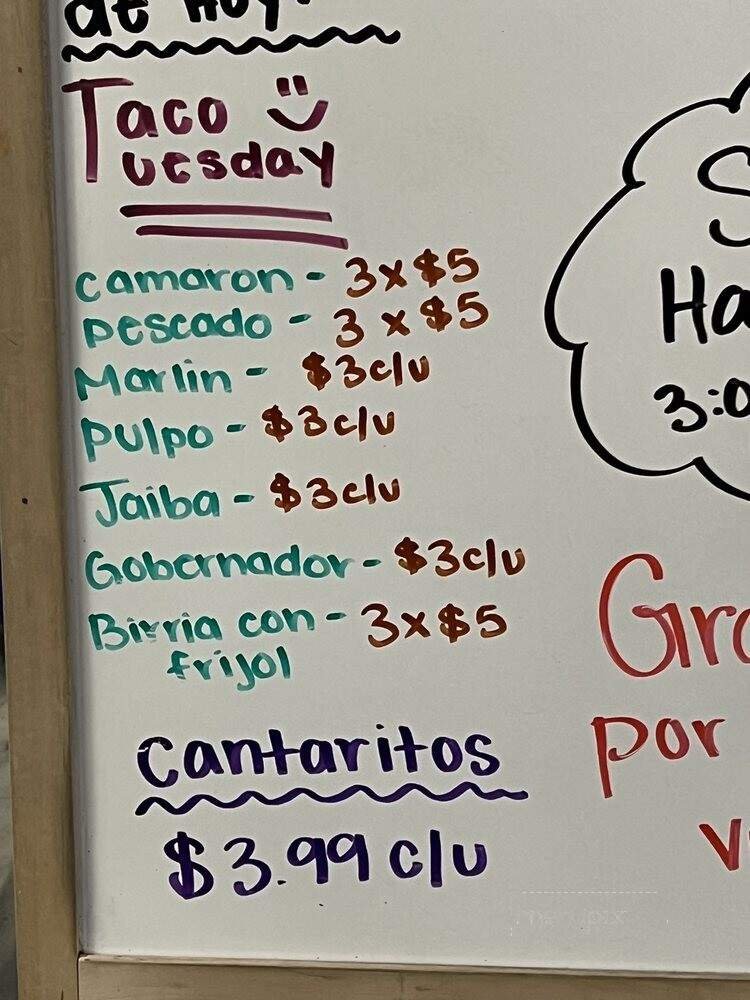 de Hoy!
Taco
Tuesday
camaron - 3 x $5
pescado - 3 x $5
Marlin - $3 c/u
pulpo - $3 c/u
Jaiba - $3 c/u
Gobernador - $3 c/u
Birria con - 3 x $5
frijol
Cantaritos
$3.99 c/u
Ha
3:0
por